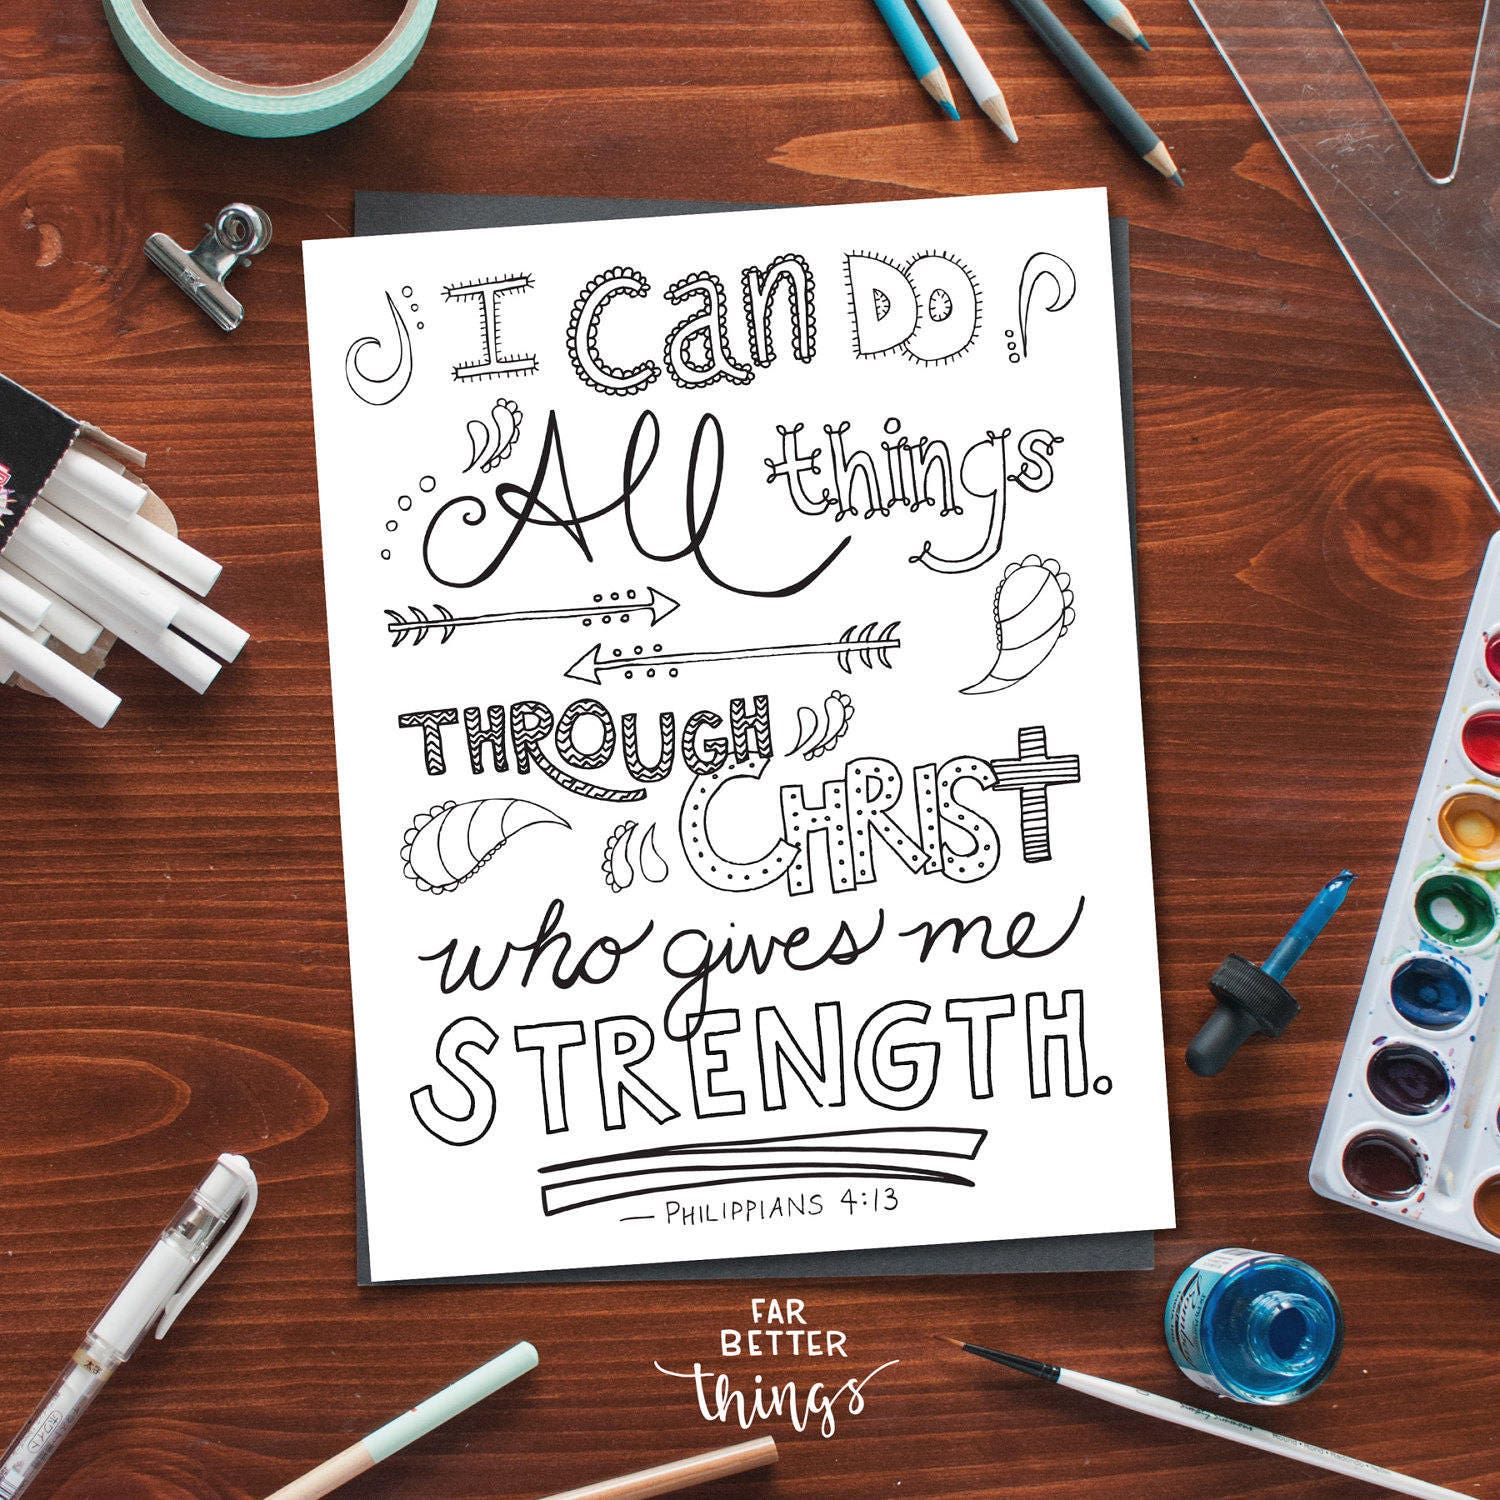 I Can DO
All things
THROUGH
CHRIST
who gives me
STRENGTH.
— PHILIPPIANS 4:13
FAR
BETTER
things